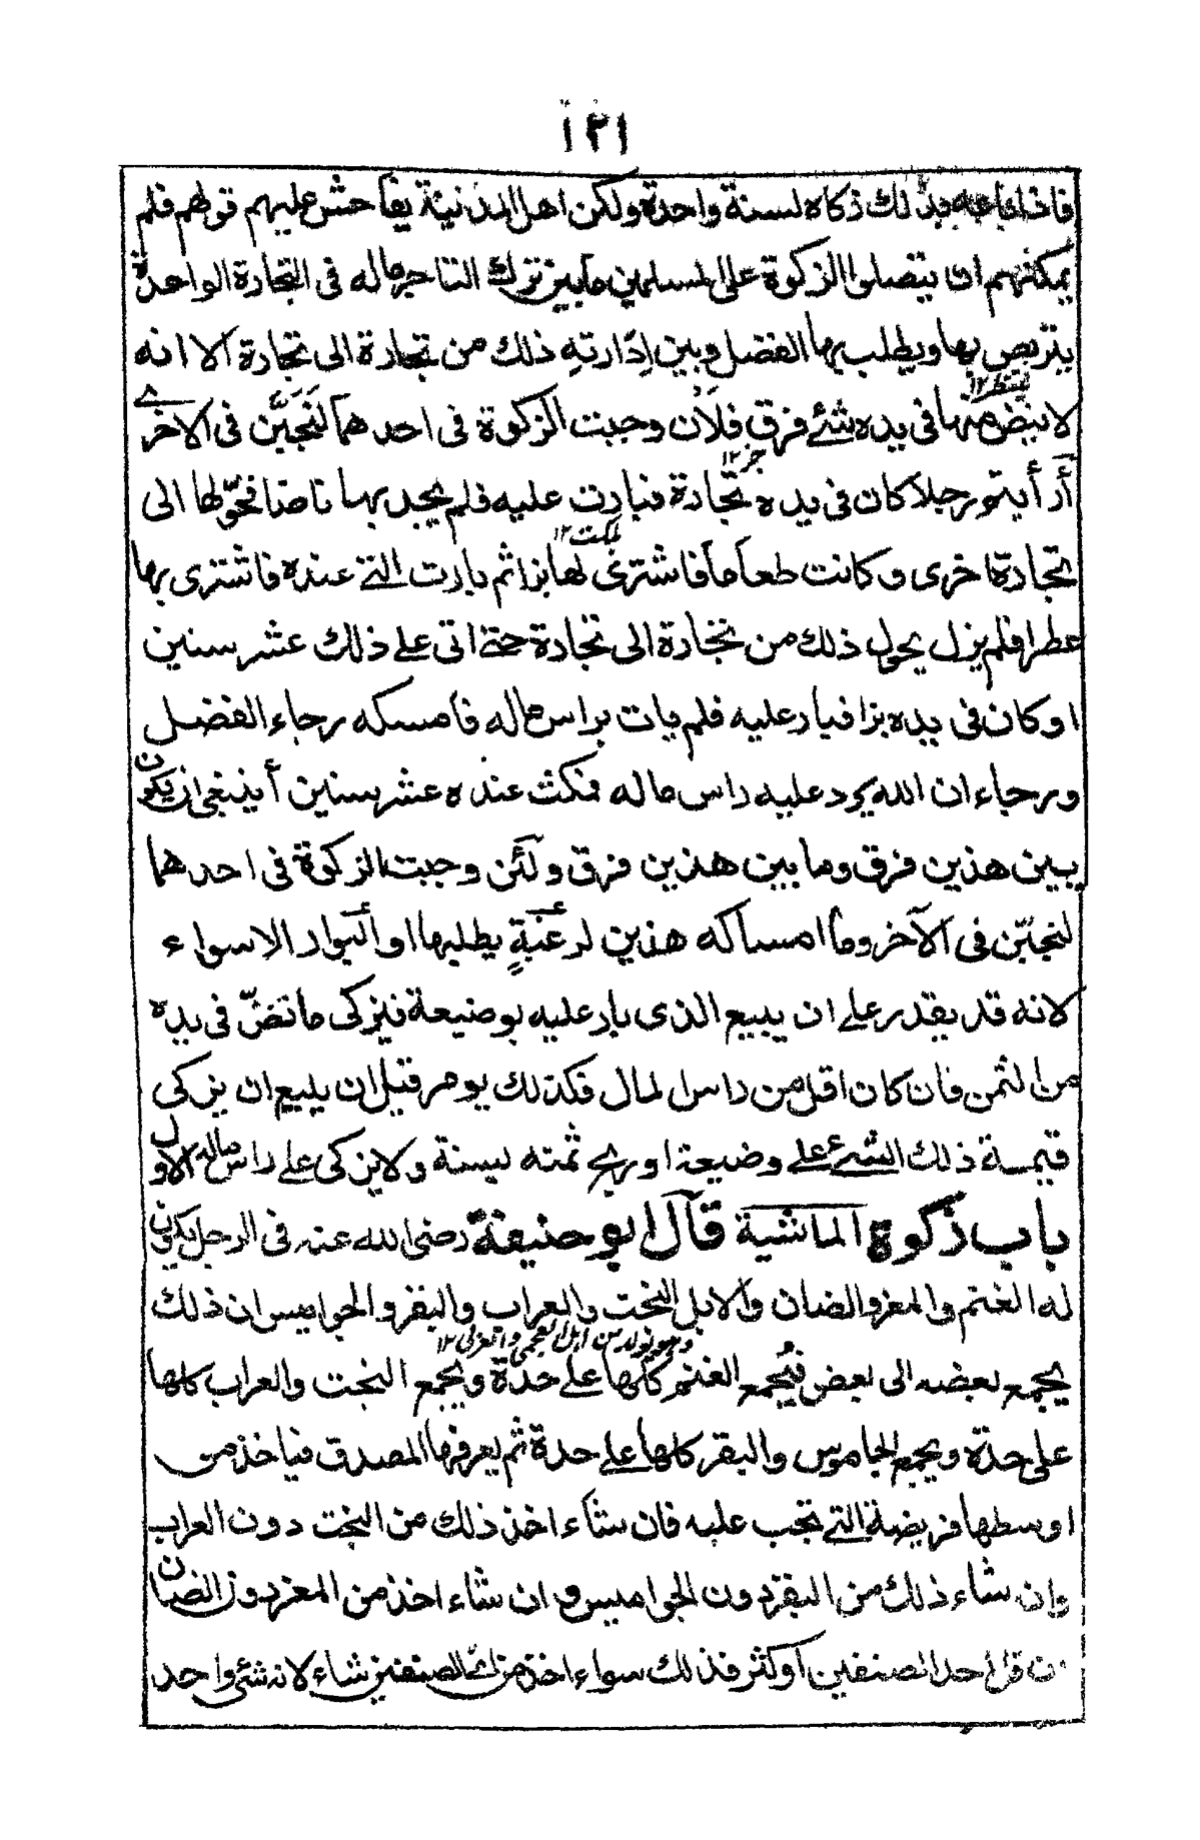 ١٢١
فاذا باعه بذلك زكاه لسنة واحدة ولكن اهل المدنية يفاحش عليهم قولهم فلم
يمكنهم ان يتصلوا الزكوة على المسلمين مابين ترك التاجر ماله فى التجارة الواحدة
يتربص بها ويطلب بها الفضل وبين إدارته ذلك من تجارة الى تجارة الا انه
لا ينض منها فى يده شئے فرق فلأن وجبت الزكوة فى احدهما لتجبن فى الاخرے
أرأيتم رجلا كان فى يده تجارة فبارت عليه فلم يجد بها ناضا فحوّلها الى
تجارة اخرى وكانت طعاما فاشترى لها بزا ثم بارت التے عنده فاشترى بها
عطرا فلم يزل يحول ذلك من تجارة الى تجارة حتے اتى علے ذلك عشر سنين
او كان فى يده بزا فبار عليه فلم يات براس ماله فامسكه رجاء الفضل
ورجاء ان الله يرد عليه راس ماله فمكث عنده عشر سنين أينبغى ان يكون
بين هذين فرق وما بين هذين فرق ولئن وجبت الزكوة فى احدهما
لتجبّن فى الآخر وما امساكه هذين لرغبةٍ يطلبها او البوار الا سواء
لانه قد يقدر علے ان يبيع الذى بار عليه بوضيعة فيزكى ما نضّ فى يده
من الثمن فان كان اقل من راس المال فكذلك يومر قبل ان يبيع ان يزكى
قيمة ذلك الشئے علے وضيعة او ربح ثمنه لسنة ولا يزكى علے راس ماله الاول
باب زكوة الماشية قال ابو حنيفة رضى الله عنه فى الرجل يكون
له الغنم والمعز والضان والابل البخت والعراب والبقر والجواميس ان ذلك
يجمع بعضه الى بعض فيُجمع الغنم كلها علے حدة ويجمع البخت والعراب كلها
على حدة ويجمع الجاموس والبقر كلها علے حدة ثم يعرفها المصدق فياخذ من
اوسطها فريضة التے تجب عليه فان شاء اخذ ذلك من البخت دون العراب
وان شاء ذلك من البقر دون الجواميس وان شاء اخذ من المعز دون الضان
ن قل احد الصنفين او كثر فذلك سواء اخذ من اى الصنفين شاء لانه شئ واحد